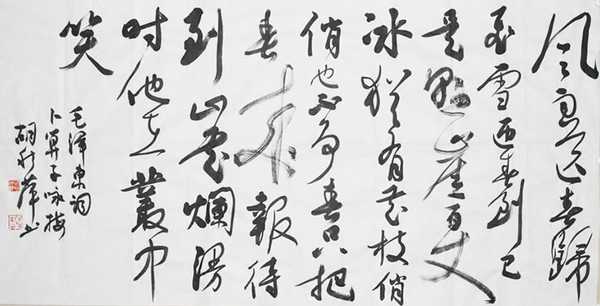 风雨送春歸
飞雪迎春到已
是懸崖百丈
冰犹有花枝俏
俏也不争春只把
春来報待
到山花爛漫
时他在叢中
笑
毛泽東词
卜算子咏梅
胡秋萍书